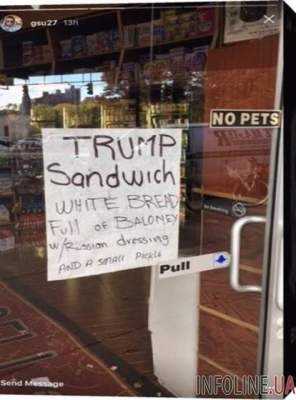 gsu27 13h
NO PETS
TRUMP
Sandwich
WHITE BREAD
Full of BALONEY
w/Russian dressing
AND A SMALL PICKLE
Pull
Send Message
INFOLINE.UA